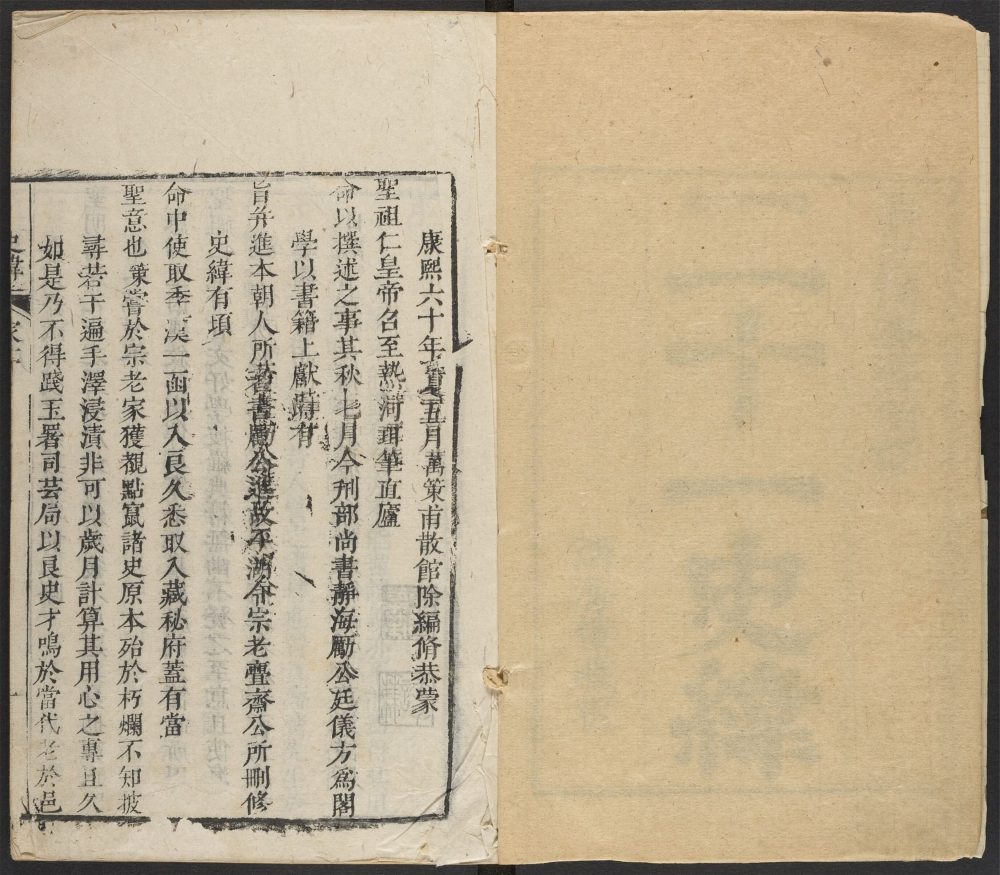 康熙六十年夏五月萬策甫散館除編脩恭蒙
聖祖仁皇帝召至熱河珥筆直廬
命以撰述之事其秋七月今刑部尚書靜海勵公廷儀方爲閣
學以書籍上獻時有
旨并進本朝人所著書勵公進故平湖令宗老疊齋公所刪修
史緯有頃
命中使取季漢一函以入良久悉取入藏秘府蓋有當
聖意也策嘗於宗老家獲覩點竄諸史原本殆於朽爛不知披
尋若干遍手澤浸漬非可以歲月計算其用心之專且久
如是乃不得踐玉署司芸局以良史才鳴於當代老於邑
史緯